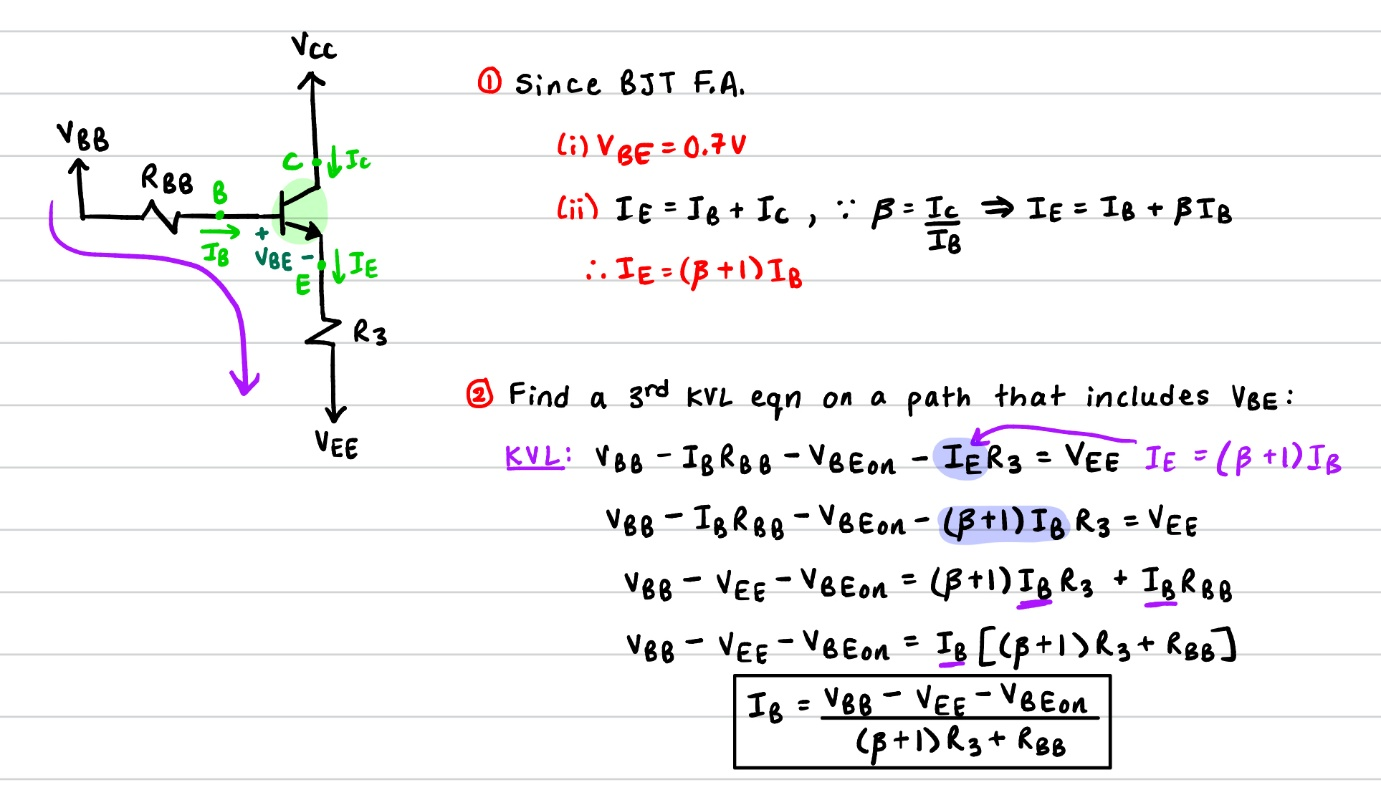 VCC
VBB
RBB
B
C
↓IC
IB
+
VBE -
E
↓IE
R3
VEE
① Since BJT F.A.
(i) VBE = 0.7V
(ii) IE = IB + IC , ∵ β = IC/IB ⇒ IE = IB + βIB
∴ IE = (β+1)IB
② Find a 3rd KVL eqn on a path that includes VBE:
KVL: VBB - IBRBB - VBEon - IER3 = VEE IE = (β+1)IB
VBB - IBRBB - VBEon - (β+1)IBR3 = VEE
VBB - VEE - VBEon = (β+1)IBR3 + IBRBB
VBB - VEE - VBEon = IB[(β+1)R3 + RBB]
IB = VBB - VEE - VBEon
(β+1)R3 + RBB